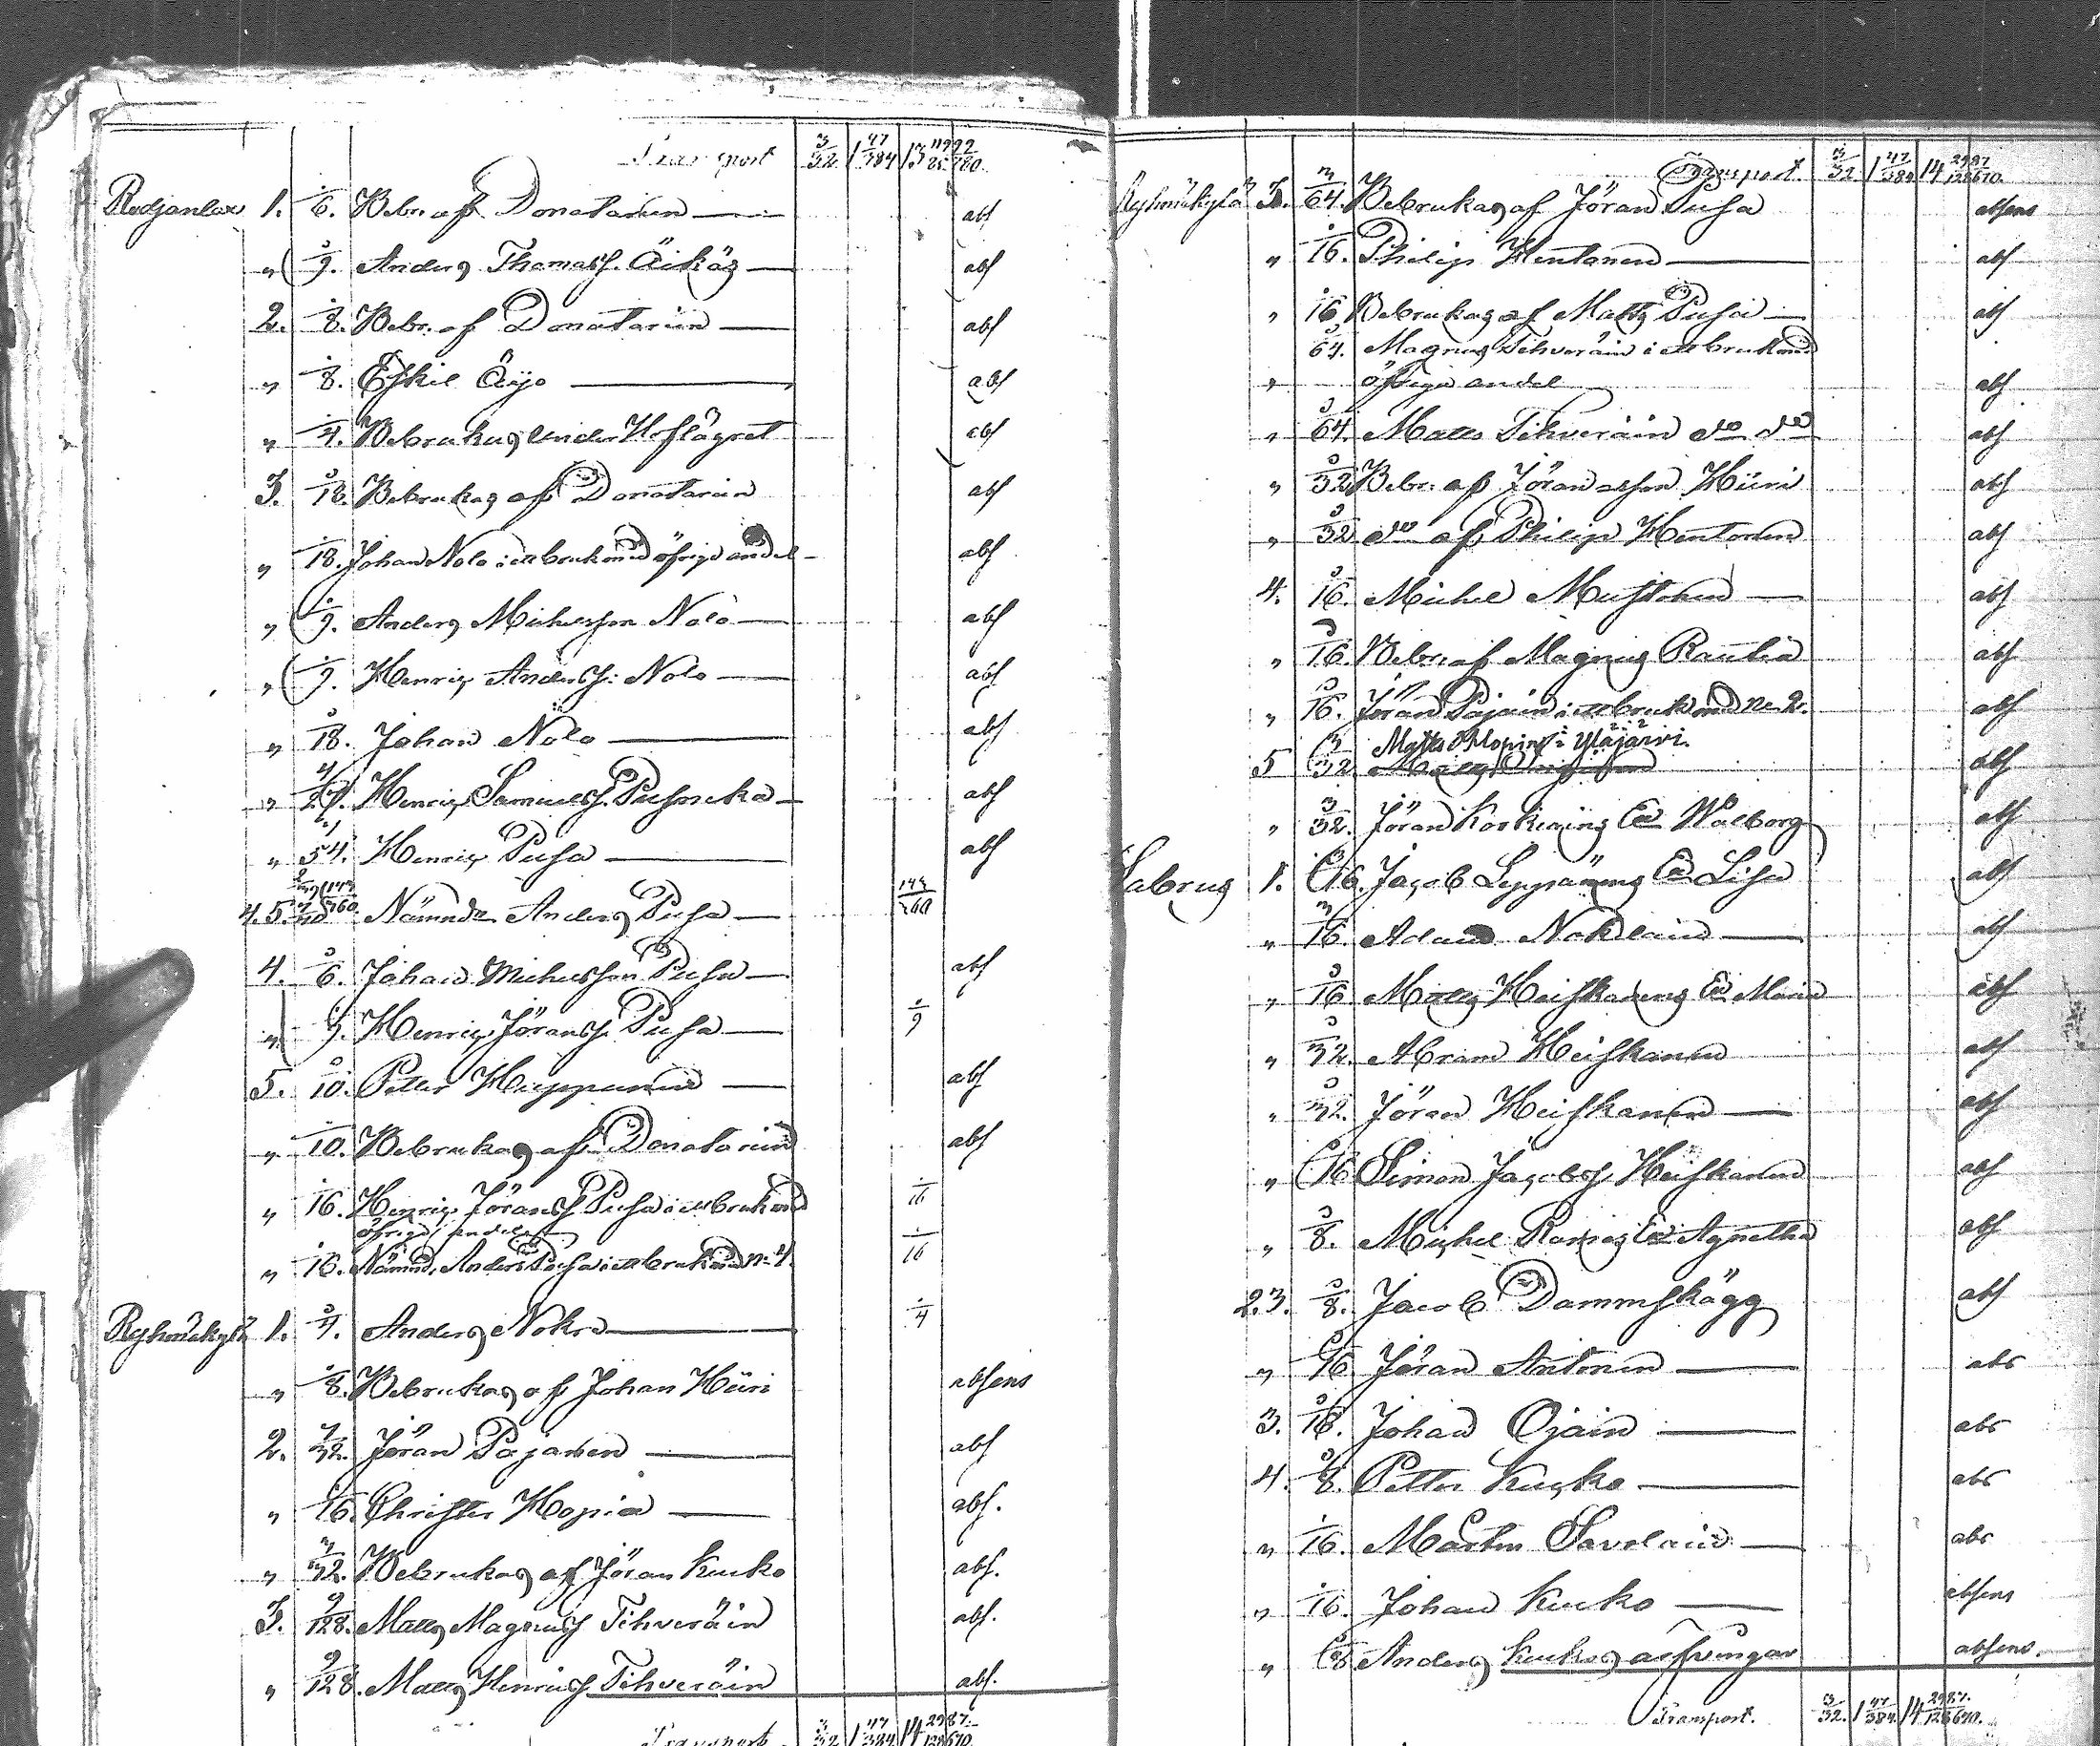 Transport 3/32 1 47/384 13
1. 1/6. Bebr. af Donatarien — abs
" 1/9. Anders Thomass. Äikäs — abs
2. 1/8. Bebr. af Donatarien — abs
" 1/8. Eskil Äijö — abs
" 1/4. Bebrukas under Hoflägret abs
3. 1/18. Bebrukas af Donatarien abs
" 1/18. Johan Nolo i ett bruk med öfrige andel — abs
" 1/9. Anders Michelsson Nolo — abs
" 1/9. Henric Anderss. Nolo — abs
" 1/18. Johan Nolo — abs
" 4/27. Henric Samuelss. — abs
" 54. Henric Pusa — abs
4.5. Nämndn Anders Pusa —
4. 1/6. Johan Michelsson Pusa — abs
" 1/9. Henric Jöranss. Pusa — 1/9
5. 1/10. Petter — abs
" 1/10. Bebrukas af Donatarien abs
" 1/16. Henric Jöranss. Pusa i ett bruk med 1/16
öfrige andelar
" 1/16. Nämnd. Anders Pusa i ett bruk med N: 4. 1/16
Ryhmäkylä 1. 1/4. Anders Nokra — 1/4
" 1/8. Bebrukas af Johan Hüri absens
2. 7/32. Jöran Pajanen — abs
" 1/16. Christer Hopia — abs.
" 3/32. Bebrukas af Jöran Kucko abs.
3. 9/128. Matts Magnuss. Tihveräin abs.
" 9/128. Matts Henrics. Tihveräin abs.
Transport 3/32 1 47/384 14
Transport. 3/32 1 47/384 14
Ryhmäkylä 3. 3/64. Bebrukas af Jöran Pusa absens
" 1/16. Philip Hentonen — abs
" 1/16 Bebrukas af Matts Pusa — abs
64. Magnus Tihveräin i ett bruk med
" öfrige andel abs
" 64. Matts Tihveräin do do abs
" 32 Bebr. af Hüri abs
" 32 do af Philip Hentonen abs
4. 1/16. Michel Mustonen — abs
" 1/16. Bebr. af Magnus Rautia abs
" 1/16. Jöran Pajain i ett bruk med N: 2. abs
5 3/32 Matts Hopia i Yläjärvi. abs
" 3/32. Jöran Korkiains Ea Walborg abs
1. 1/16. Jacob Leppänens Ea Lisa abs
" 3/16. Adam — abs
" 1/16 Matts Heiskanens Ea Maria abs
" 32. Abram Heiskanen abs
" 32. Jöran Heiskanen — abs
" 1/16 Simon Jacobss. Heiskanen abs
" 1/8. Michel Ea Agnetha abs
2.3. 1/8. Jacob Dammskägg abs
" 1/16 Jöran Antonen — abs
3. 1/16. Johan Ojain — abs
4. 1/8. Petter Kucko — abs
" 1/16. Mårten Savolain — abs
" 1/16. Johan Kucko — absens
" 1/8 Anders Kuckos arfvingar absens.
Transport. 3/32. 1 47/384. 14